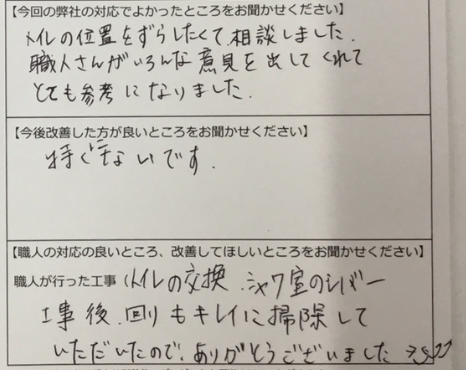 【今回の弊社の対応でよかったところをお聞かせください】
トイレの位置をずらしたくて相談しました.
職人さんがいろんな意見を出してくれて
とても参考になりました.
【今後改善した方が良いところをお聞かせください】
特にないです.
【職人の対応の良いところ、改善してほしいところをお聞かせください】
職人が行った工事（トイレの交換.シャワ室の
工事後.回りもキレイに掃除して
いただいたので、ありがとうございました